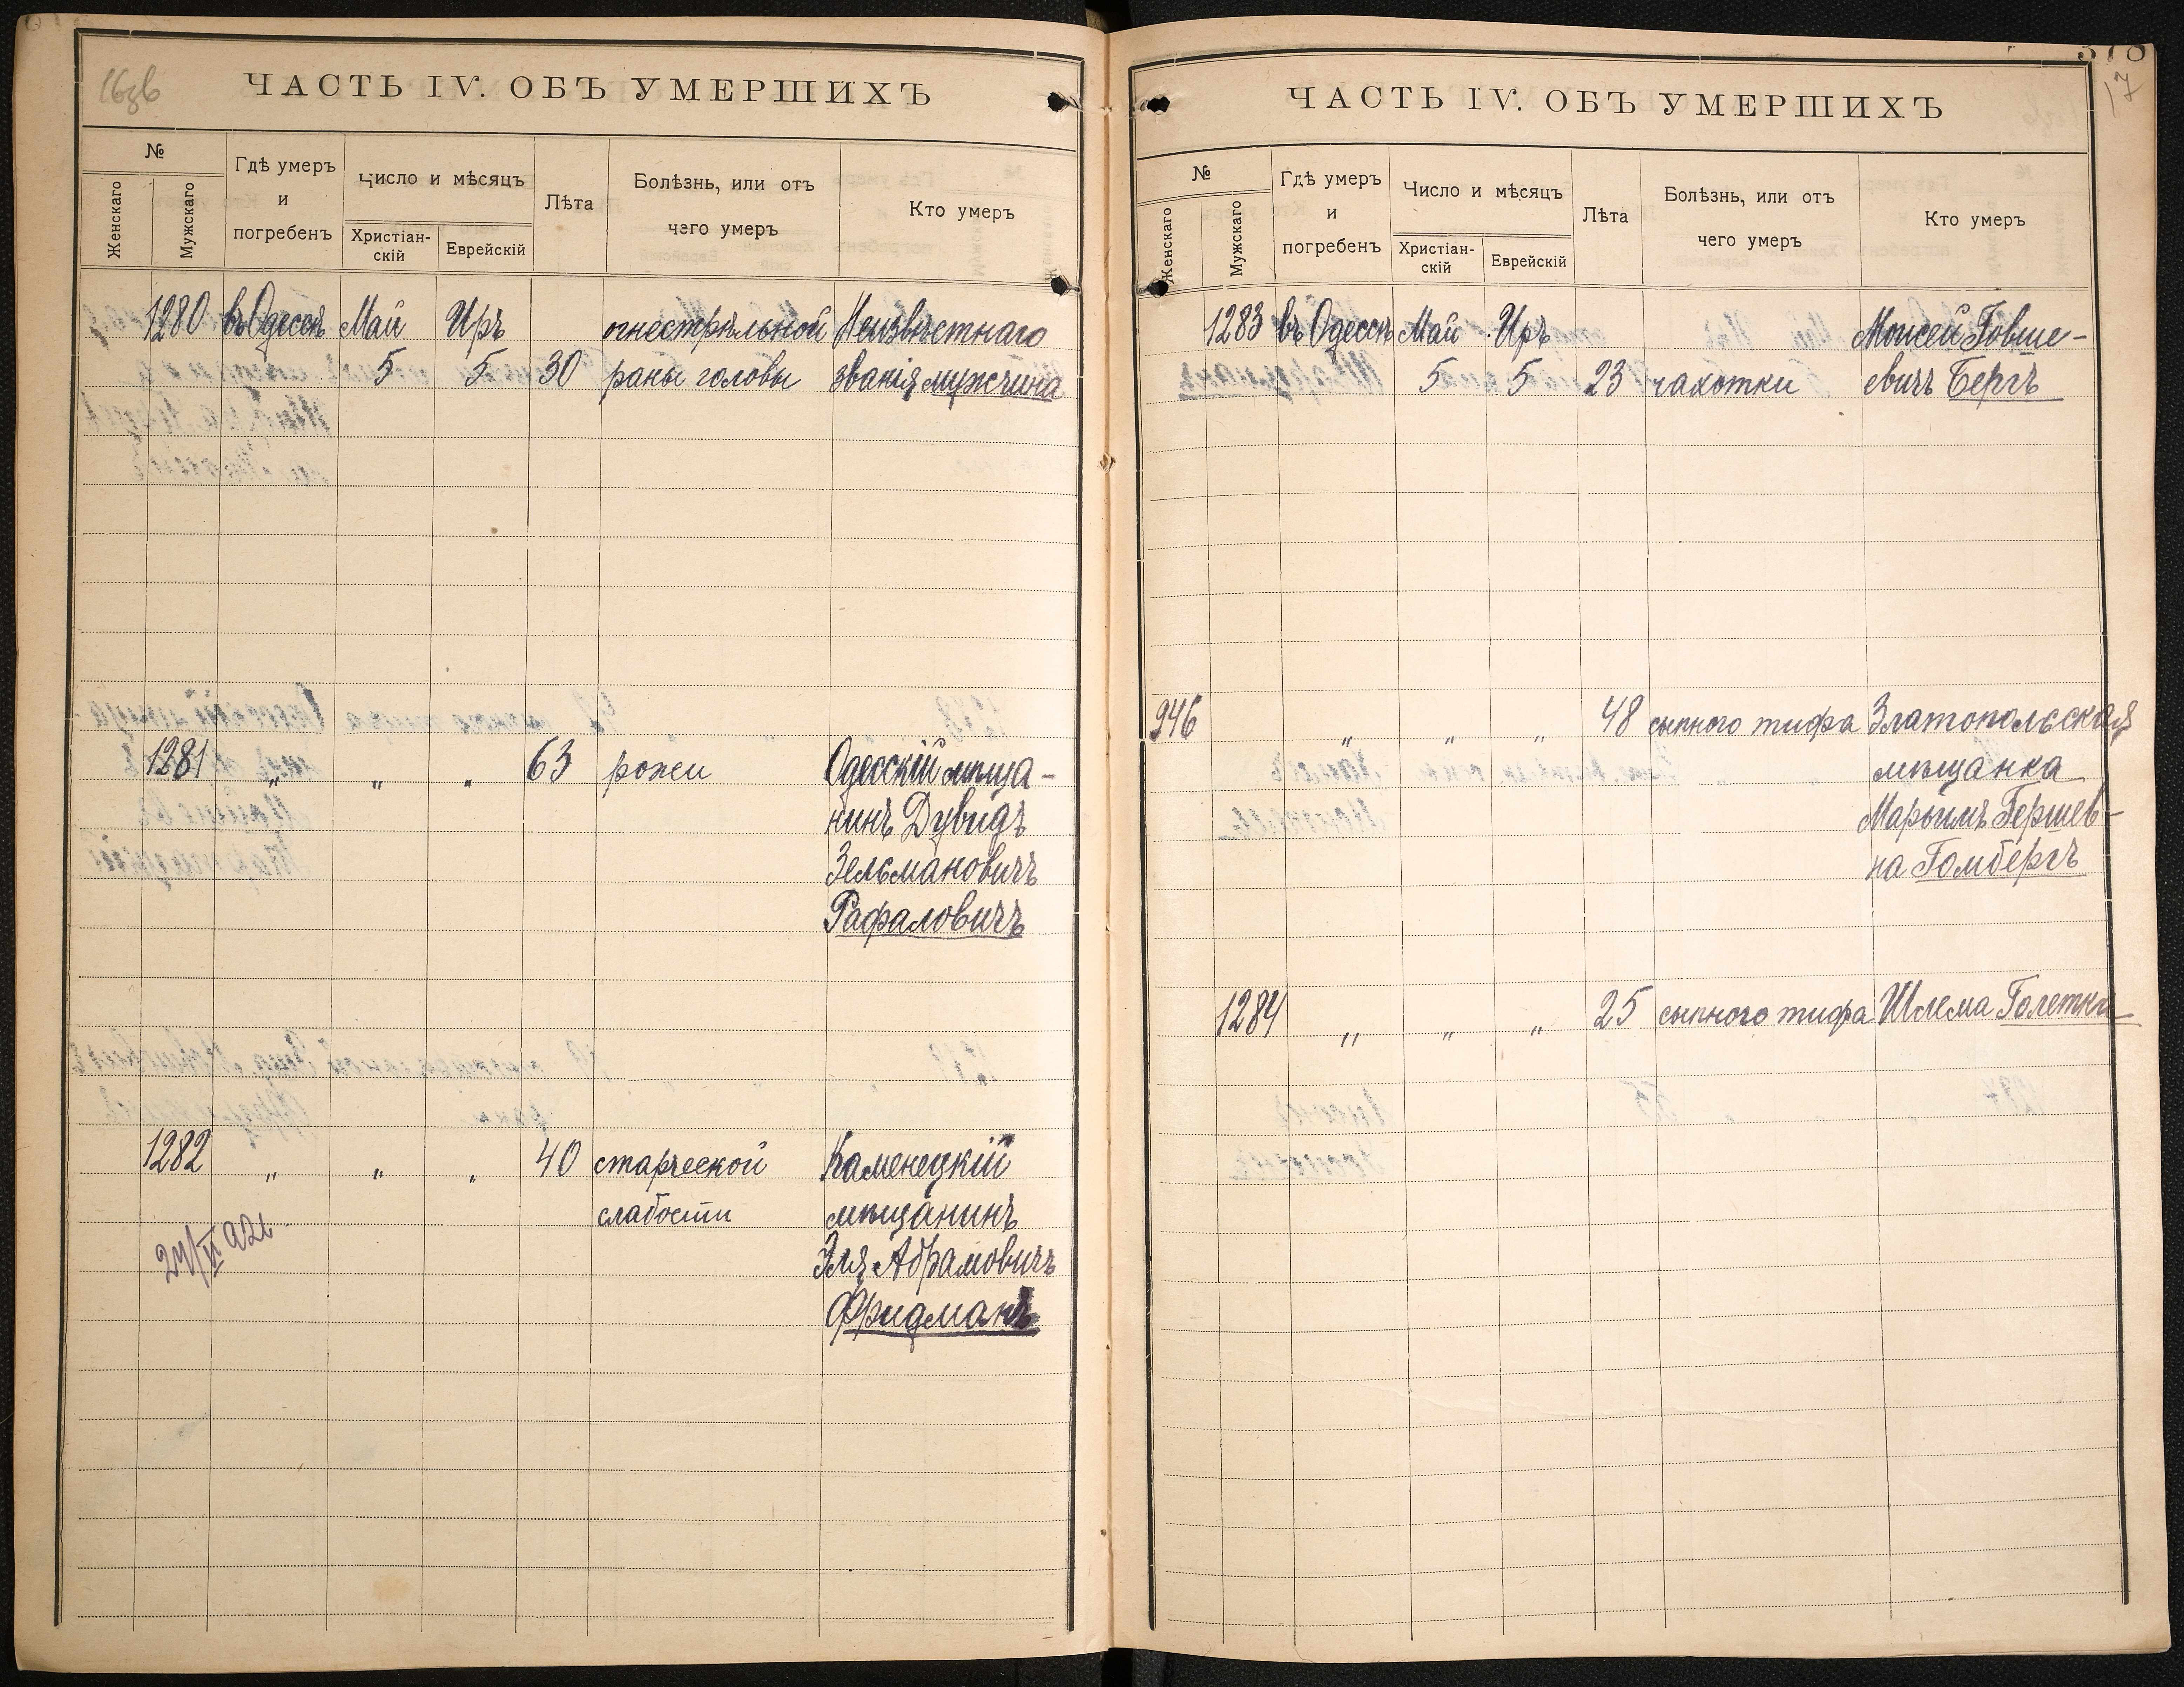 16зв
ЧАСТЬ IV. ОБЪ УМЕРШИХЪ
№
Женскаго
Мужскаго
Гдѣ умеръ
и
погребенъ
Число и мѣсяцъ
Христіан-
скій
Еврейскій
Лѣта
Болѣзнь, или отъ
чего умеръ
Кто умеръ
1280 въ Одессѣ Май Иръ огнестрѣльной Неизвѣстнаго
5 5 30 раны головы званія мужчина
1281 " " " 63 рожи Одесскій мѣща-
нинъ Дувидъ
Зельмановичъ
Рафаловичъ
1282 " " " 40 старческой Каменецкій
слабости мѣщанинъ
Эля Абрамовичъ
Фридманъ
17
ЧАСТЬ IV. ОБЪ УМЕРШИХЪ
№
Женскаго
Мужскаго
Гдѣ умеръ
и
погребенъ
Число и мѣсяцъ
Христіан-
скій
Еврейскій
Лѣта
Болѣзнь, или отъ
чего умеръ
Кто умеръ
1283 въ Одессѣ Май Иръ Моисей Говше-
5 5 23 чахотки евичъ Бергъ
946 " " " 48 сыпного тифа Златопольская
мѣщанка
Марьимъ Гершев-
на Гомбергъ
1284 " " " 25 сыпного тифа Шлема